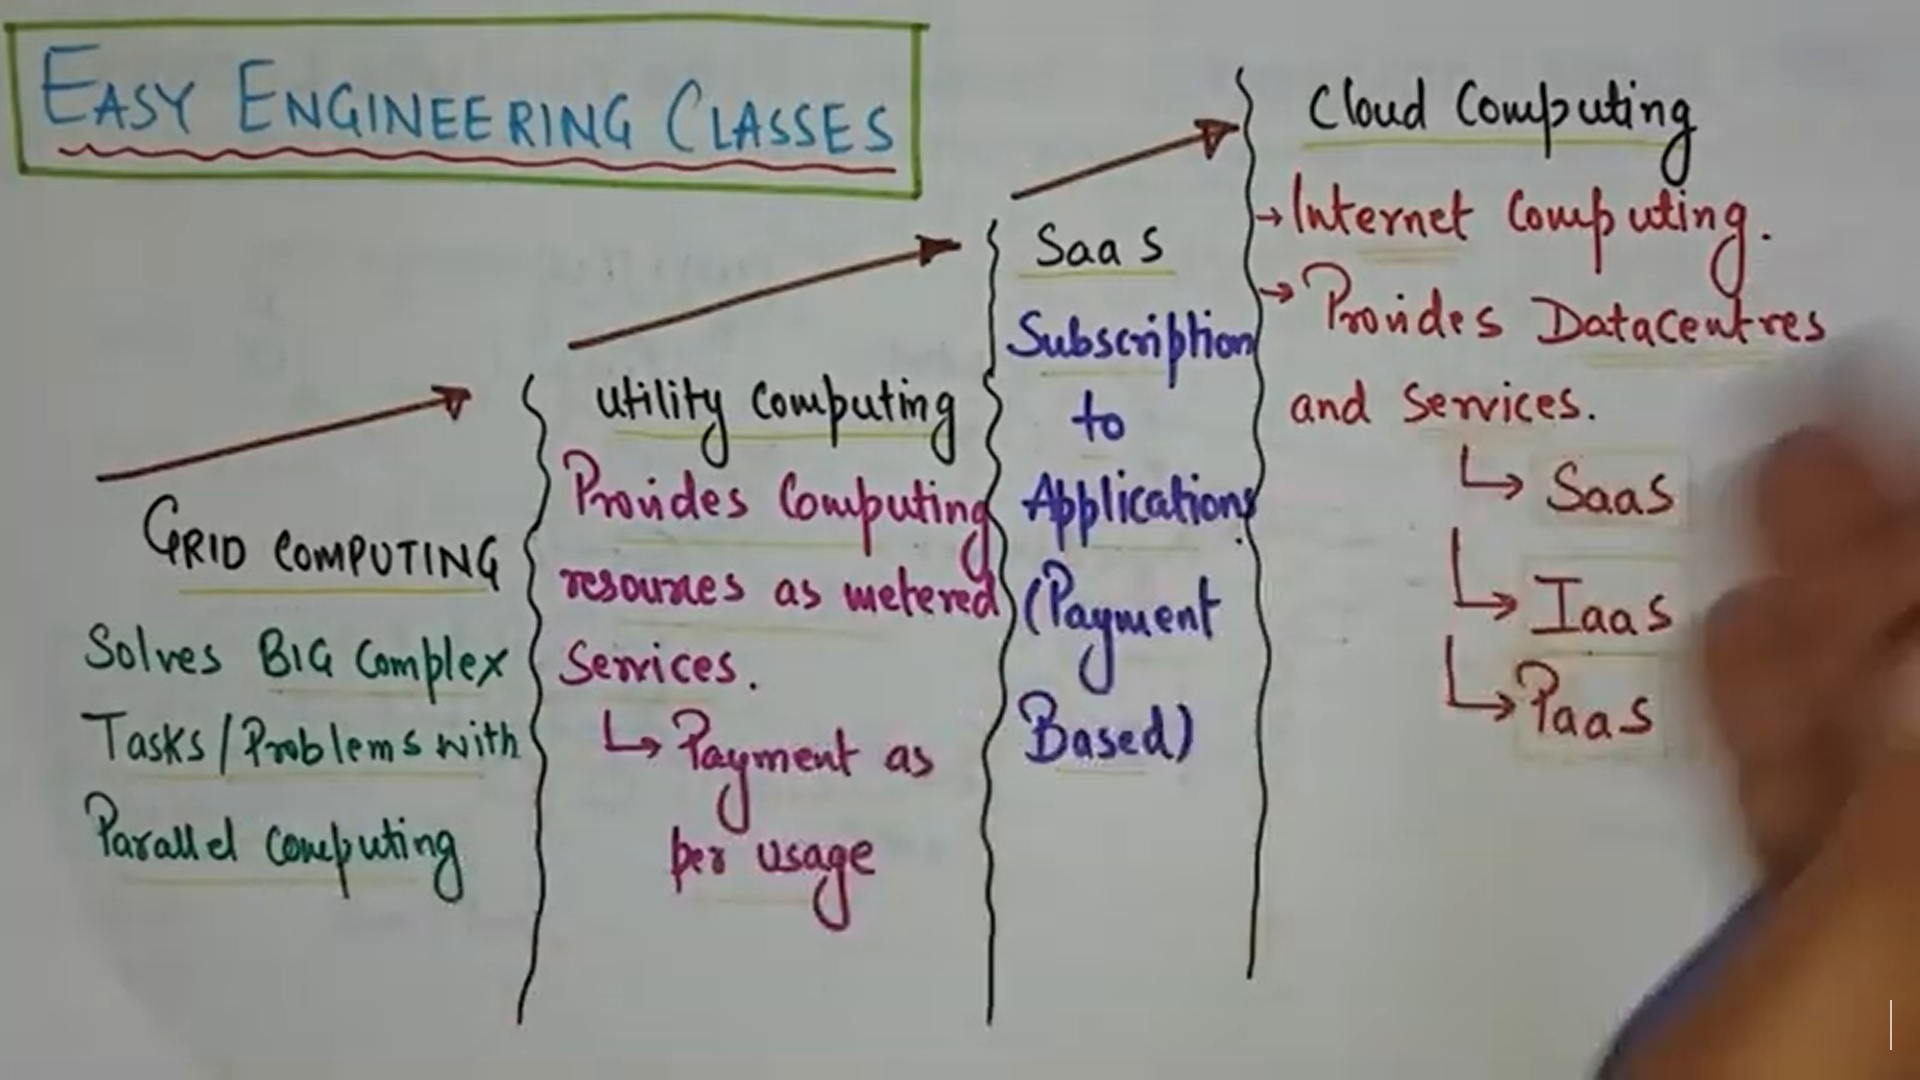 EASY ENGINEERING CLASSES
GRID COMPUTING
Solves BIG Complex
Tasks/Problems with
Parallel computing
Utility Computing
Provides Computing
resources as metered
Services.
↳ Payment as
per usage
SaaS
Subscription
to
Applications.
(Payment
Based)
Cloud Computing
→ Internet Computing.
→ Provides Datacentres
and Services.
↳ SaaS
↳ IaaS
↳ PaaS